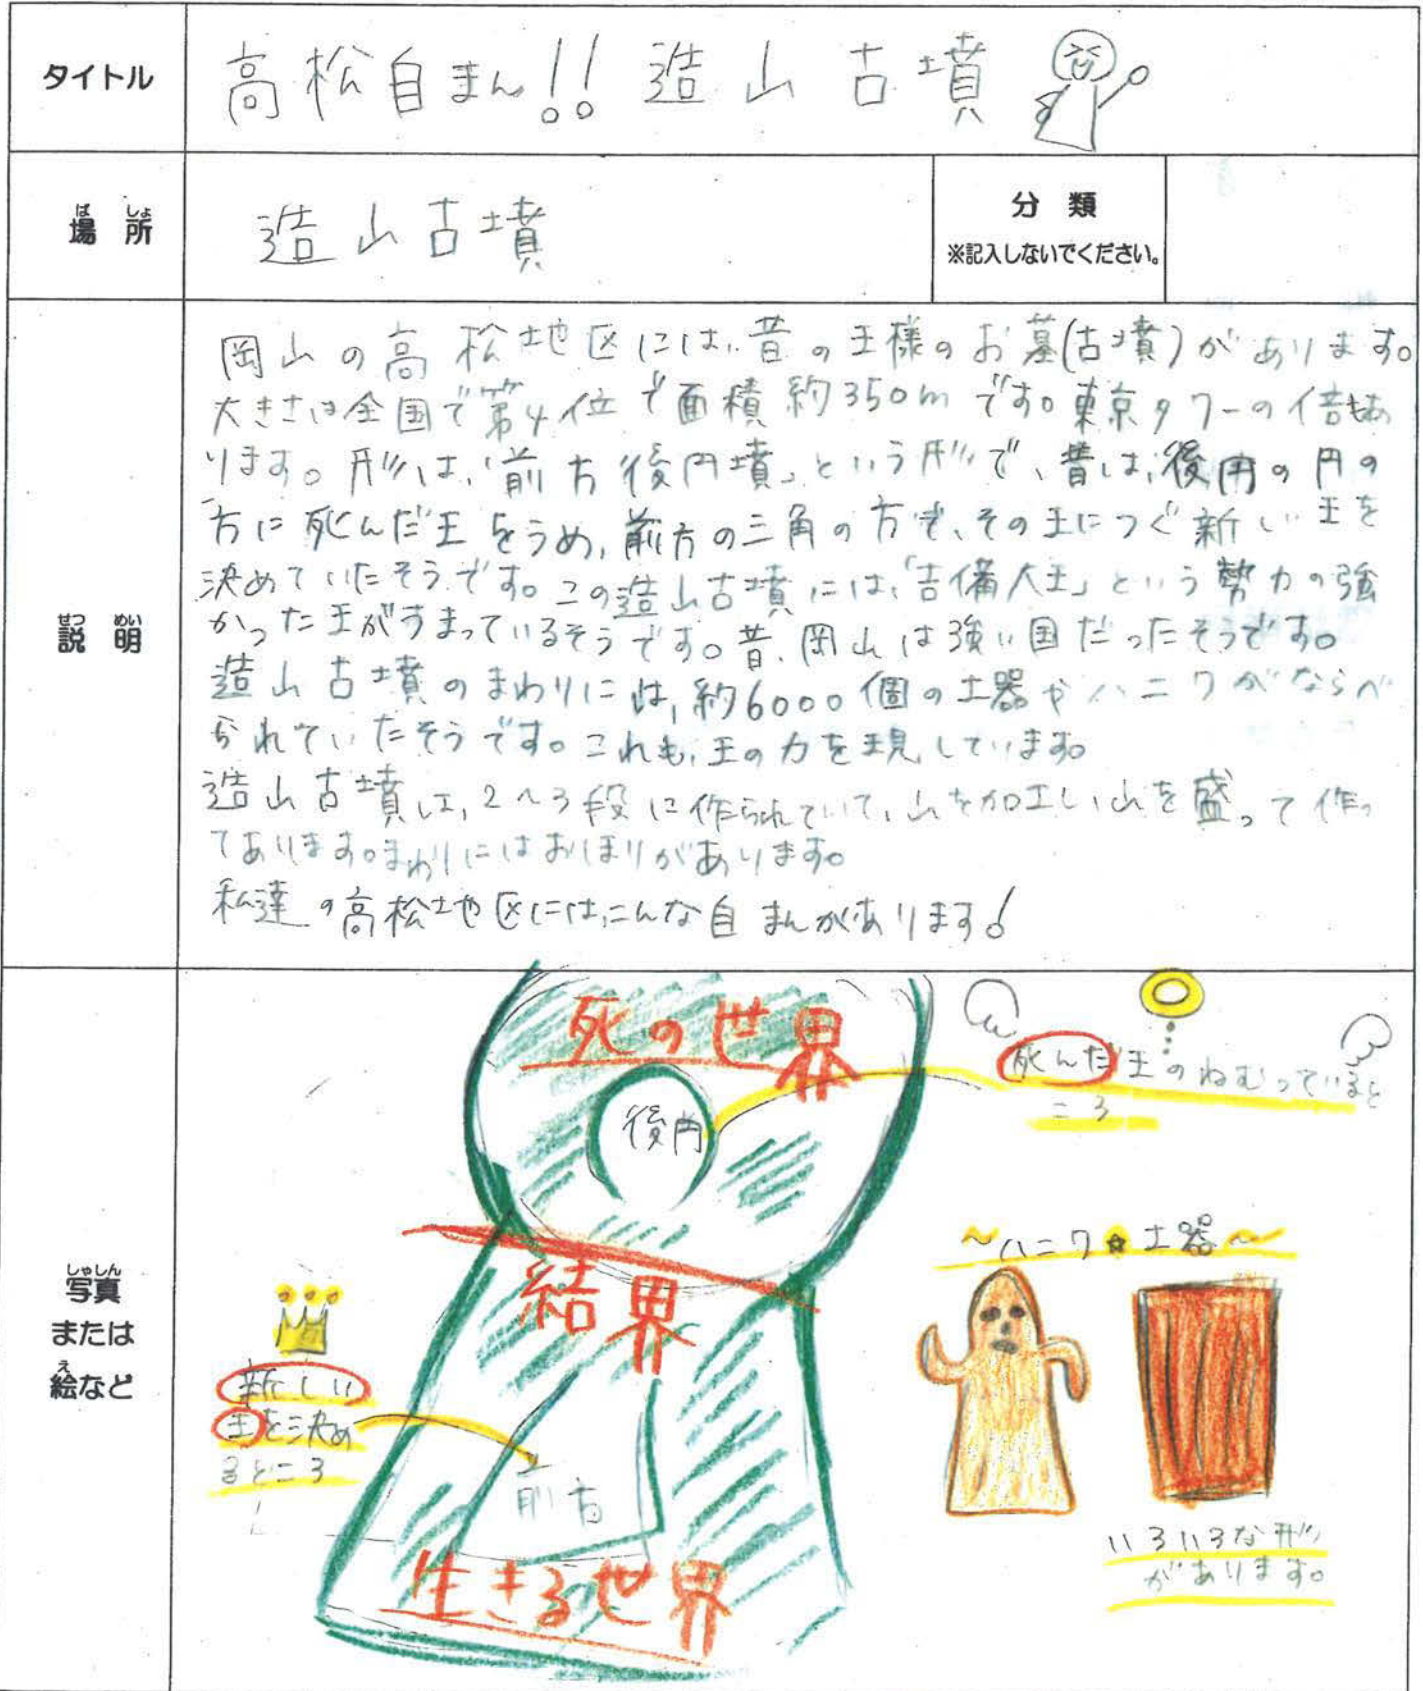 タイトル
高松自まん!! 造山古墳
ばしょ
場所
造山古墳
分類
※記入しないでください。
せつめい
説明
岡山の高松地区には、昔の王様のお墓(古墳)があります。
大きさは全国で第4位で面積約350mです。東京タワーの1倍もあ
ります。形は、「前方後円墳」という形で、昔は、後円の円の
方に死んだ王をうめ、前方の三角の方で、その王につぐ新しい王を
決めていたそうです。この造山古墳には、「吉備大王」という勢力の強
かった王がうまっているそうです。昔、岡山は強い国だったそうです。
造山古墳のまわりには、約6000個の土器やハニワがならべ
られていたそうです。これも、王の力を現しています。
造山古墳は、2〜3段に作られていて、山を加工し、山を盛って作っ
てあります。まわりにはおほりがあります。
私達の高松地区には、こんな自まんがあります!
しゃしん
写真
または
え
絵など
死の世界
後円
死んだ王のねむっていると
ころ
結界
新しい
王を決め
るところ
前方
生きる世界
〜ハニワ☆土器〜
いろいろな形
があります。